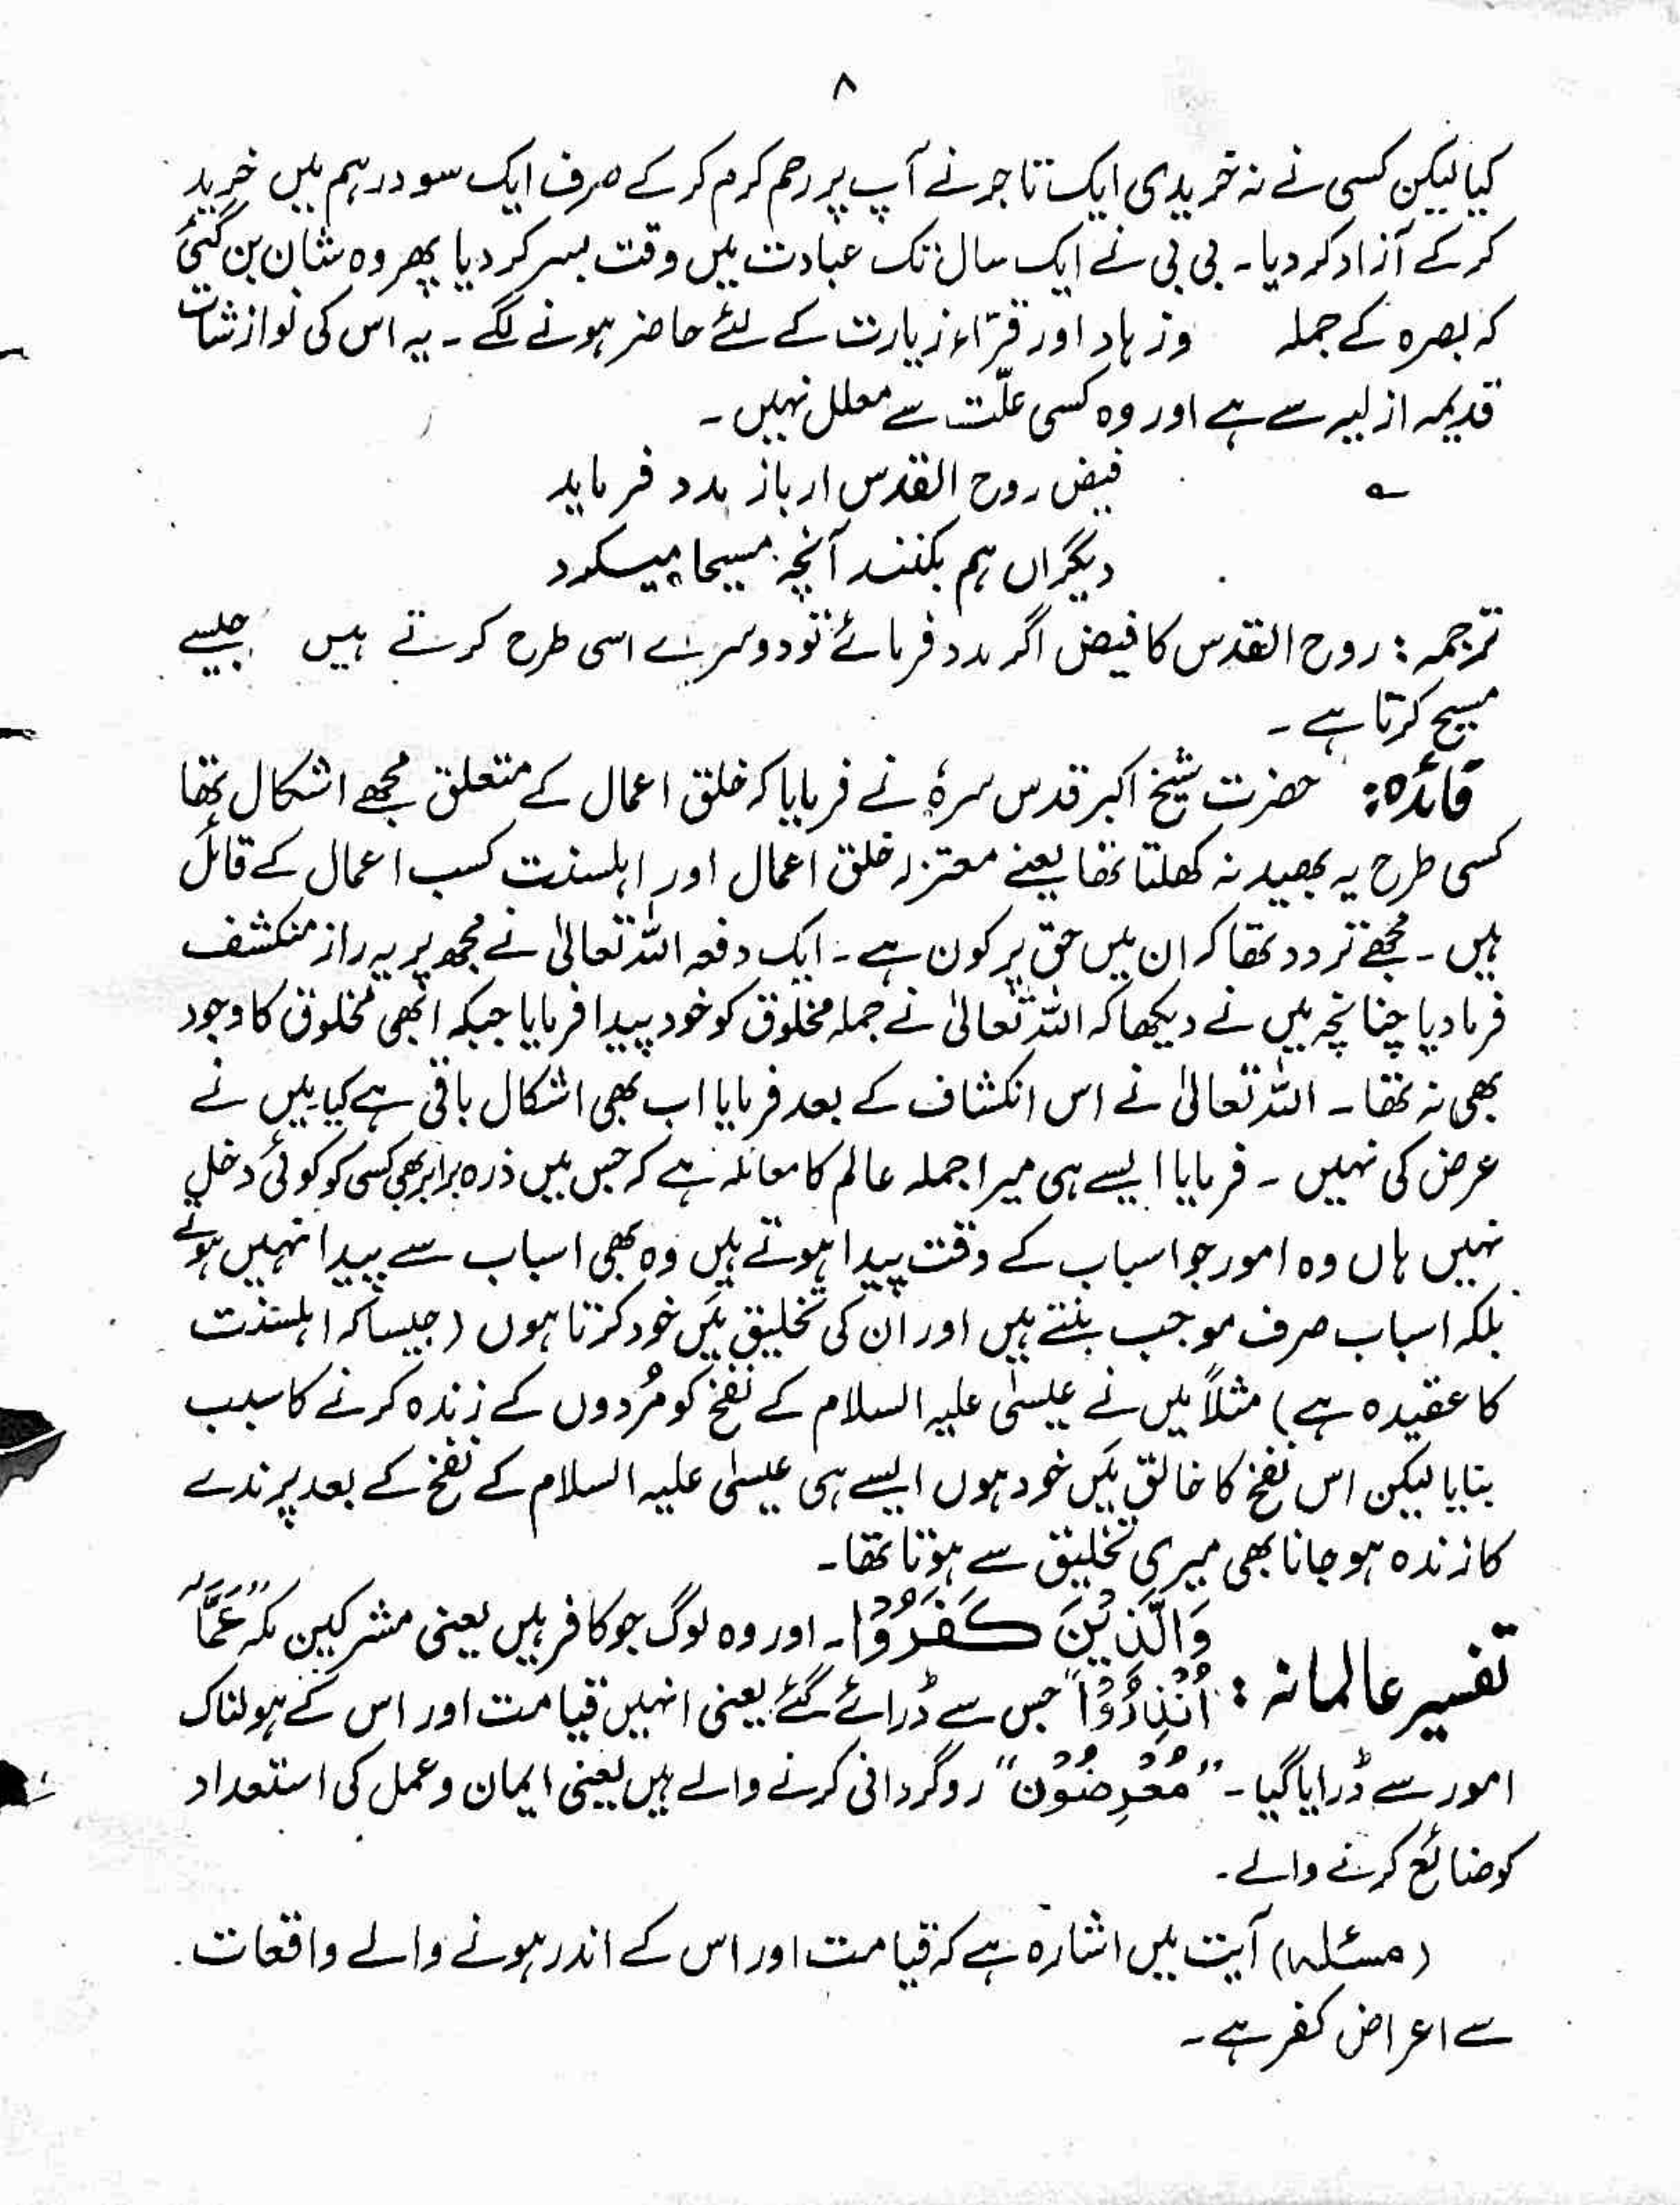 ۸
کیا لیکن کسی نے نہ خریدی ایک تاجر نے آپ پر رحم کرم کر کے صرف ایک سو درہم میں خرید
کر کے آزاد کر دیا۔ بی بی نے ایک سال تک عبادت میں وقت بسر کر دیا پھر وہ شان بن گئی
کہ بصرہ کے جملہ وزہاد اور قرّاء زیارت کے لئے حاضر ہونے لگے۔ یہ اس کی نوازشات
قدیمہ ازلیہ سے ہے اور وہ کسی علّت سے معلل نہیں۔
؎ فیض روح القدس ار باز مدد فرماید
دیگراں ہم بکنند آنچہ مسیحا میکرد
ترجمہ: روح القدس کا فیض اگر مدد فرمائے تو دوسرے اسی طرح کرتے ہیں جیسے
مسیح کرتا ہے۔
فائدہ: حضرت شیخ اکبر قدس سرہٗ نے فرمایا کہ خلق اعمال کے متعلق مجھے اشکال تھا
کسی طرح یہ بھید نہ کھلتا تھا یعنے معتزلہ خلق اعمال اور اہلسنت کسب اعمال کے قائل
ہیں۔ مجھے تردد تھا کہ ان میں حق پر کون ہے۔ ایک دفعہ اللہ تعالیٰ نے مجھ پر یہ راز منکشف
فرما دیا چنانچہ میں نے دیکھا کہ اللہ تعالیٰ نے جملہ مخلوق کو خود پیدا فرمایا جبکہ ابھی مخلوق کا وجود
بھی نہ تھا۔ اللہ تعالیٰ نے اس انکشاف کے بعد فرمایا اب بھی اشکال باقی ہے کیا میں نے
عرض کی نہیں۔ فرمایا ایسے ہی میرا جملہ عالم کا معاملہ ہے کہ جس میں ذرہ برابر بھی کسی کو کوئی دخل
نہیں ہاں وہ امور جو اسباب کے وقت پیدا ہوتے ہیں وہ بھی اسباب سے پیدا نہیں ہوتے
بلکہ اسباب صرف موجب بنتے ہیں اور ان کی تخلیق مَیں خود کرتا ہوں (جیسا کہ اہلسنت
کا عقیدہ ہے) مثلاً میں نے عیسٰی علیہ السلام کے نفخ کو مُردوں کے زندہ کرنے کا سبب
بنایا لیکن اس نفخ کا خالق مَیں خود ہوں ایسے ہی عیسٰی علیہ السلام کے نفخ کے بعد پرندے
کا زندہ ہو جانا بھی میری تخلیق سے ہوتا تھا۔
تفسیر عالمانہ: وَالَّذِیْنَ کَفَرُوْا۔ اور وہ لوگ جو کافر ہیں یعنی مشرکین مکہ "عَمَّا
اُنْذِرُوْا" جس سے ڈرائے گئے یعنی انہیں قیامت اور اس کے ہولناک
امور سے ڈرایا گیا۔ "مُعْرِضُوْن" روگردانی کرنے والے ہیں یعنی ایمان و عمل کی استعداد
کو ضائع کرنے والے۔
(مسئلہ) آیت میں اشارہ ہے کہ قیامت اور اس کے اندر ہونے والے واقعات
سے اعراض کفر ہے۔